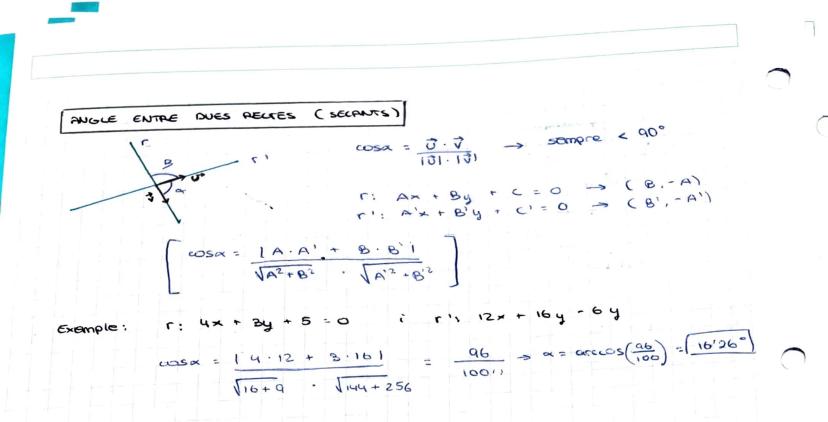 ANGLE ENTRE DUES RECTES (SECANTS)
r
r'
B
u
α
v
cosα = u⃗ · v⃗ / |u⃗| · |v⃗| → sempre < 90°
r: Ax + By + C = 0 → (B, -A)
r': A'x + B'y + C' = 0 → (B', -A')
[ cosα = |A · A' + B · B'| / √A²+B² · √A'²+B'² ]
Exemple: r: 4x + 3y + 5 = 0 i r': 12x + 16y - 6y
cosα = |4 · 12 + 3 · 16| / √16+9 · √144+256 = 96 / 100 → α = arccos(96/100) = 16'26°